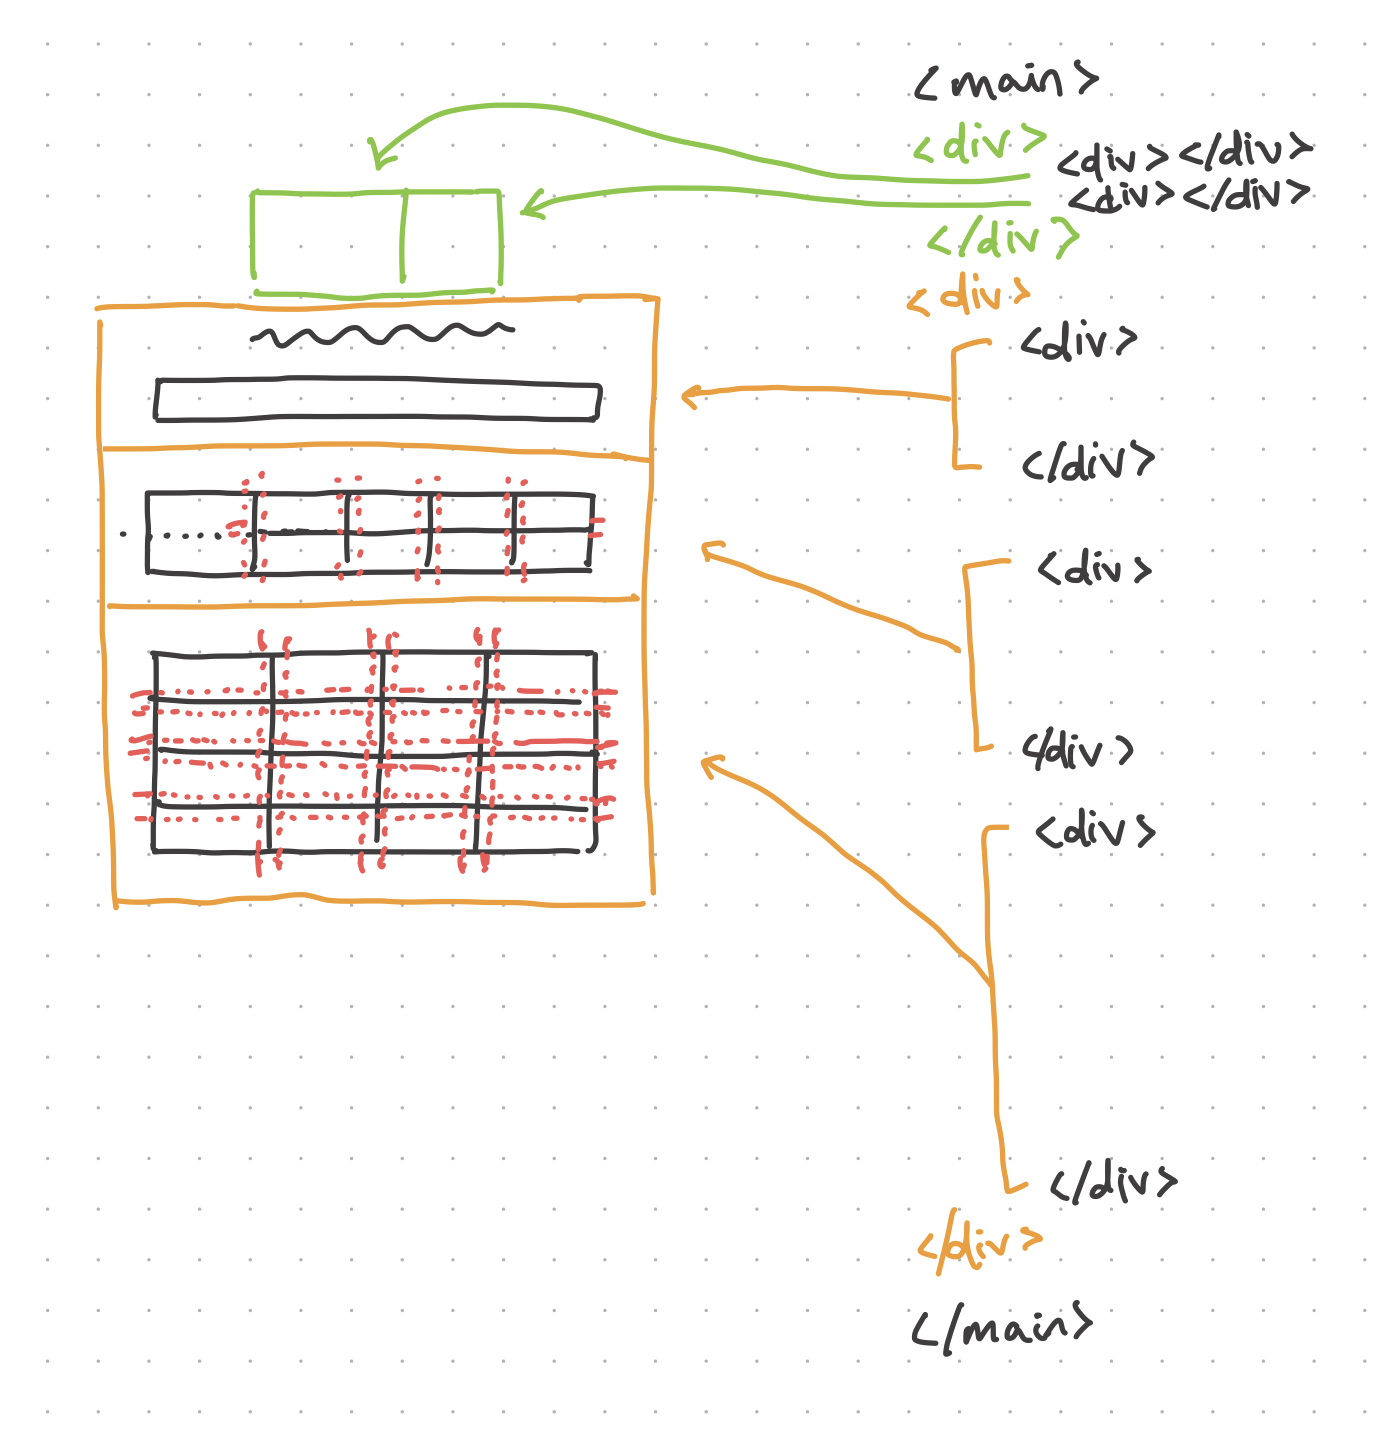 <main>
<div>
<div></div>
<div></div>
</div>
<div>
<div>
</div>
<div>
</div>
<div>
</div>
</div>
</main>